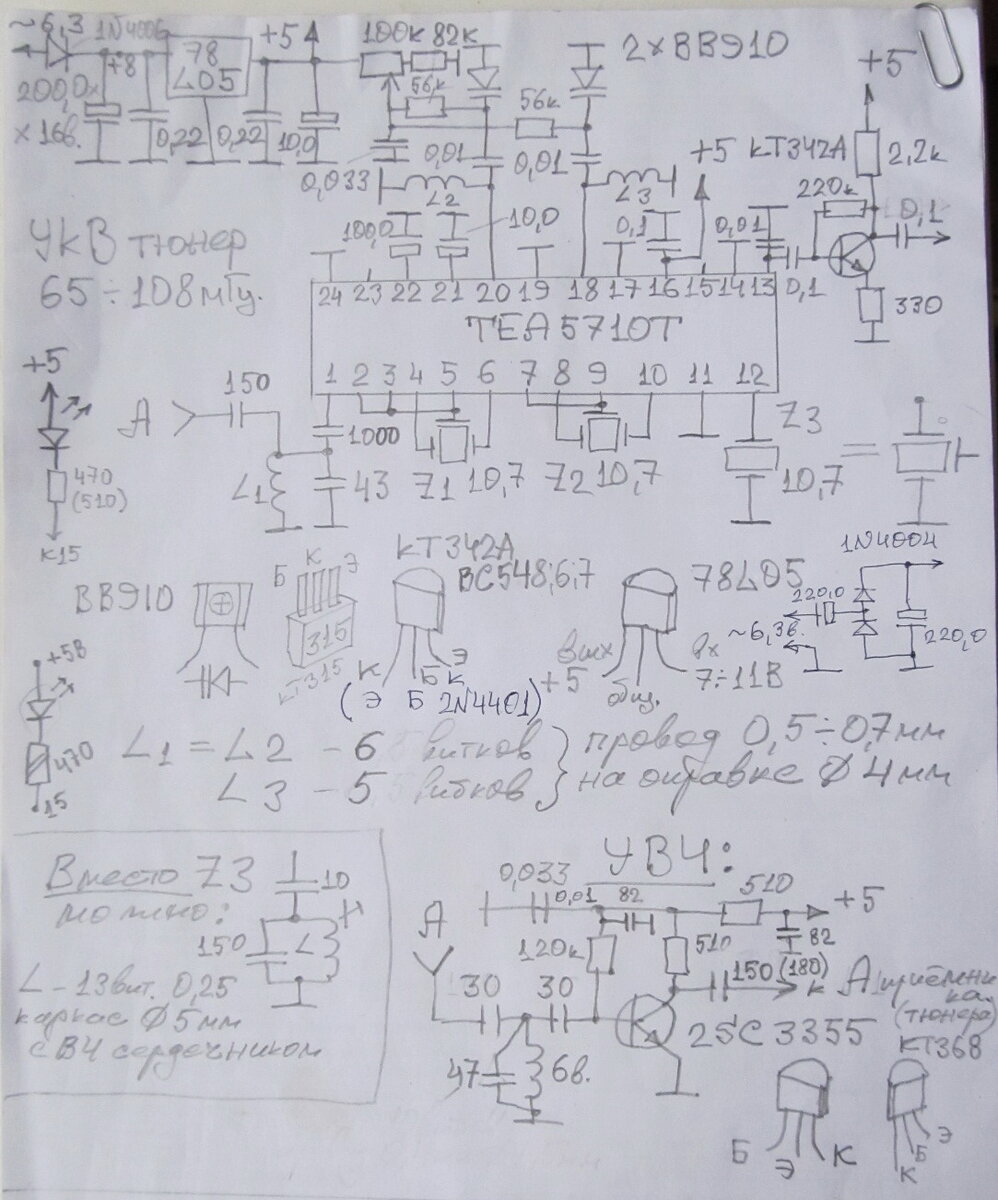 ~6,3 1N4006 +5 100к 82к
78
L05
+8
200,0х
х 16в.
0,22 0,22 10,0
56к
56к
2×BB910
+5
0,033 0,01 0,01 +5 КТ342А 2,2к
L2 L3
100,0 10,0 0,1 0,01
220к 0,1
0,1 330
УКВ тюнер
65÷108мГц.
24 23 22 21 20 19 18 17 16 15 14 13
TEA5710T
1 2 3 4 5 6 7 8 9 10 11 12
+5
470
(510)
К15
A 150
1000
L1 43 Z1 10,7 Z2 10,7 Z3
10,7 =
BB910
Б К Э
315
КТ315
КТ342А
BC548;6;7
К Б Э
К
(Э Б 2N4401)
78L05
Вых
+5
общ.
Вх
7÷11В
1N4004
220,0
~6,3в.
220,0
+5В
470
15
L1 = L2 - 6 витков } провод 0,5÷0,7мм
L3 - 5 витков } на оправке Ø 4мм
Вместо Z3
можно:
10
150 L
L - 13вит. 0,25
каркас Ø5мм
с ВЧ сердечником
УВЧ:
0,033 0,01 82 510 +5
A 120к 510 82
30 30 150 (180) к А приёмни
ка
(тюнера)
47 6в. 2SC3355
КТ368
Б Э К
К Б Э